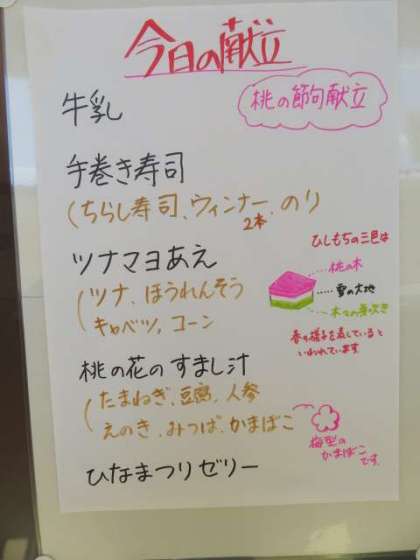 今日の献立
桃の節句献立
牛乳
手巻き寿司
(ちらし寿司、ウィンナー、のり
2本
ツナマヨあえ
(ツナ、ほうれんそう
キャベツ、コーン
ひしもちの三色は
・・・桃の木
・・・雪の大地
・・・木々の芽吹き
春の様子を表していると
いわれています
桃の花のすまし汁
(たまねぎ、豆腐、人参
えのき、みつば、かまぼこ
梅型の
かまぼこ
です。
ひなまつりゼリー